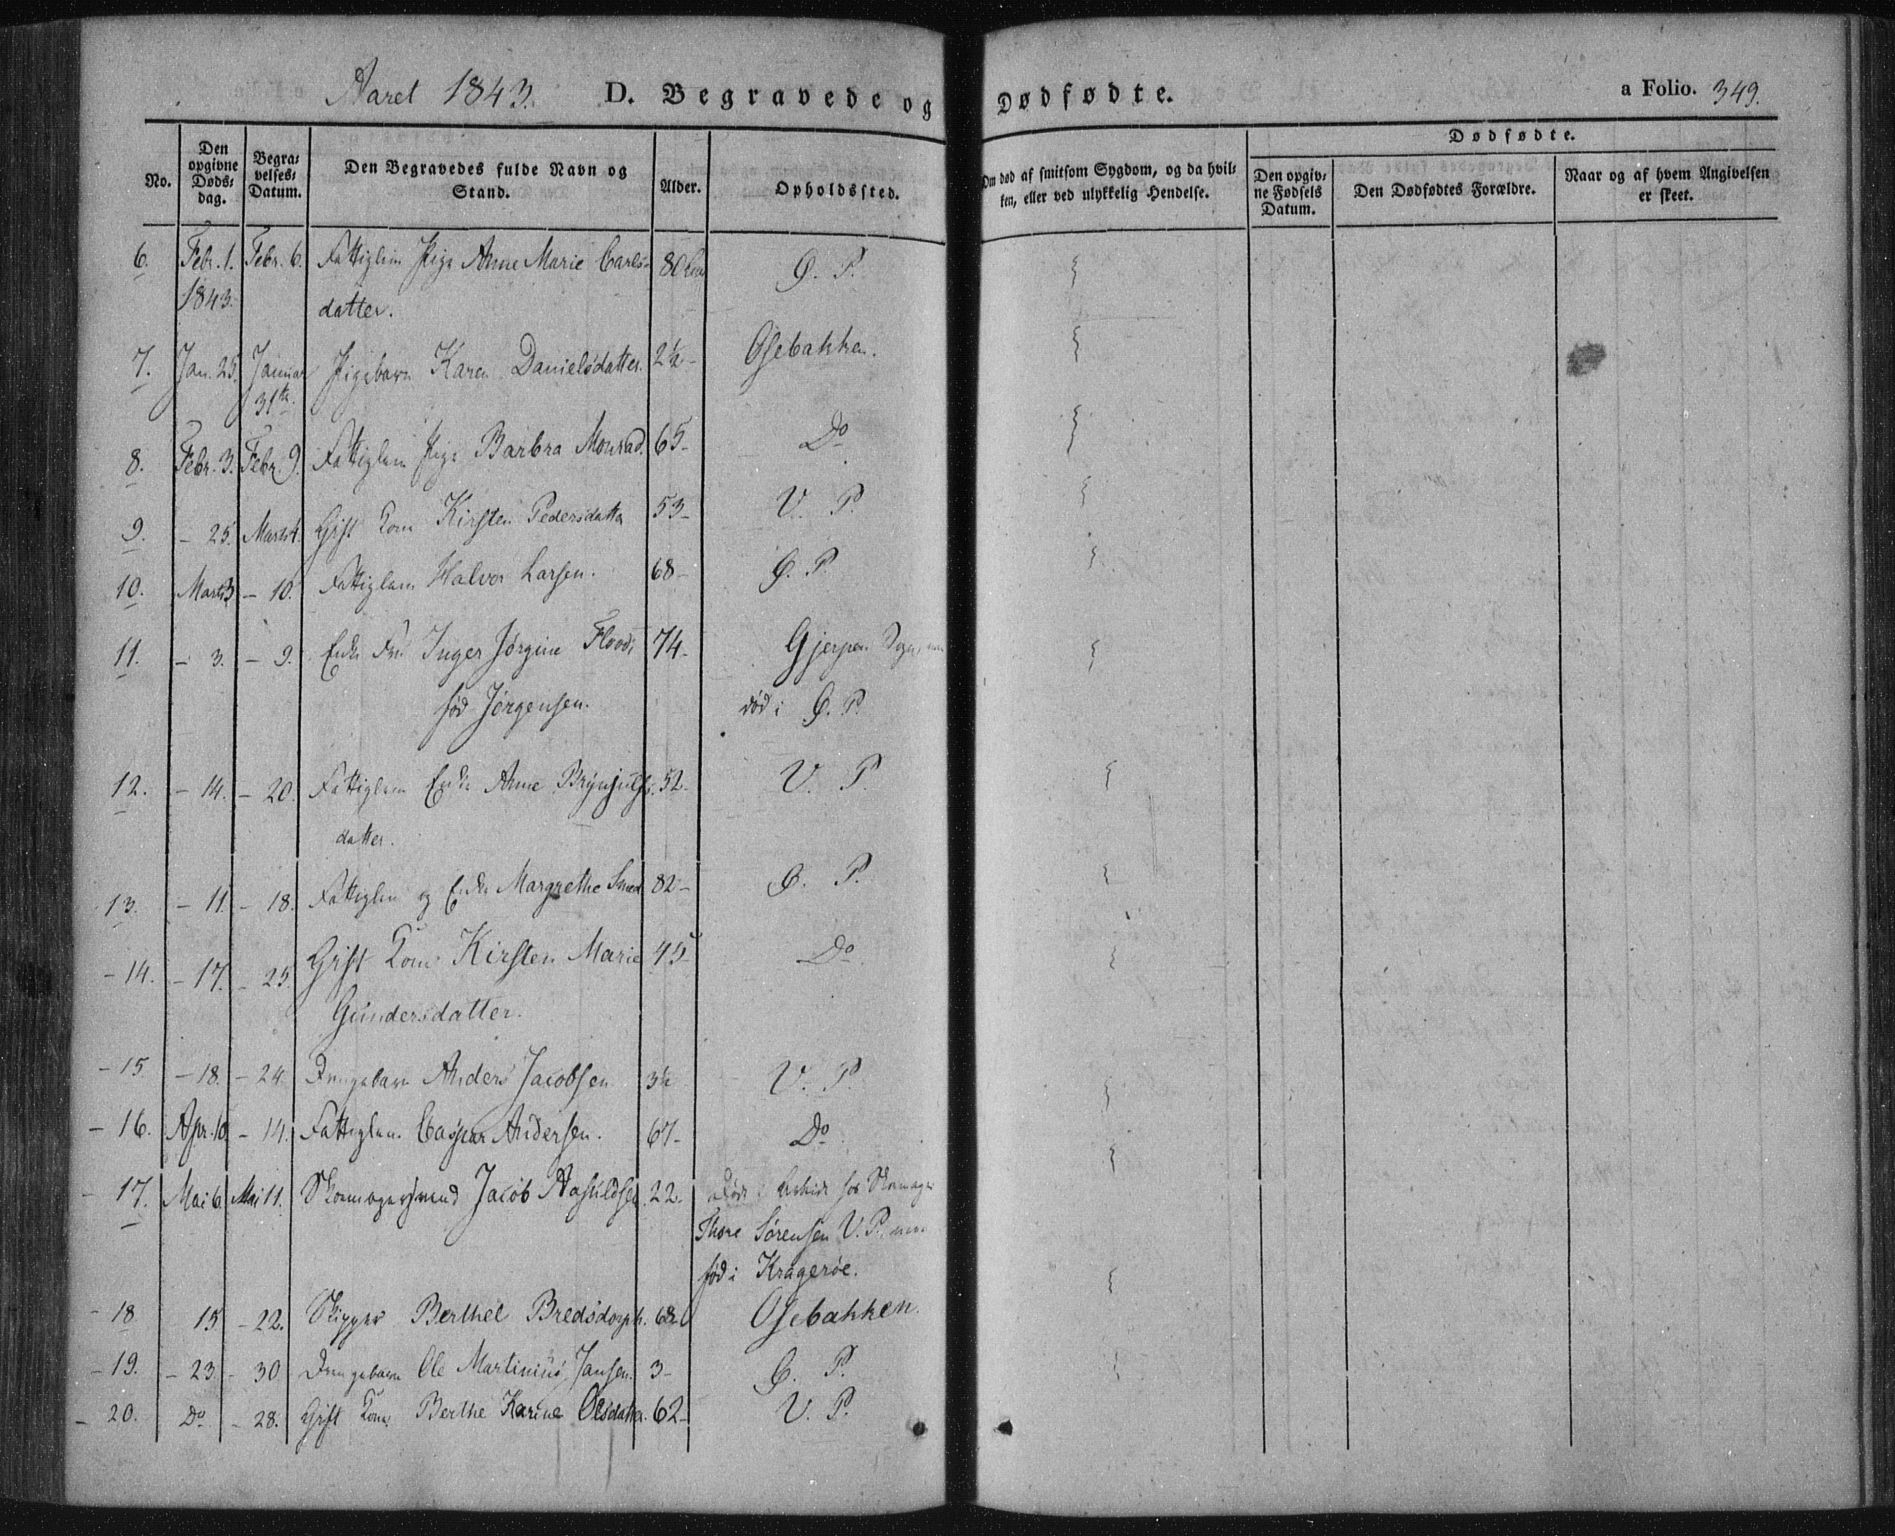 Aaret 1843. D. Begravede og Dødfødte. a Folio. 349.
No. Den opgivne Døds-dag. Begra-velses-Datum. Den Begravedes fulde Navn og Stand. Alder. Opholdssted. Om død af smitsom Sygdom, og da hvil-ken, eller ved ulykkelig Hendelse. Dødfødte. Den opgiv-ne Fødsels Datum. Den Dødfødtes Forældre. Naar og af hvem Angivelsen er skeet.
6. Febr. 1. Febr. 6. Fattiglem Pige Anne Marie Carls- 80 Ø. P.
1843. datter.
7. Jan. 25. Januar Pigebarn Karen Danielsdatter. 2½ Osebakken.
31te
8. Febr. 3. Febr. 9. Fattiglem Pige Barbra Monrad. 65- Do
9. - 25. Marts 4. Gift Kone Kirsten Pedersdatter 53- V. P.
10. Marts 3 - 10. Fattiglem Halvor Larsen. 68- Ø. P.
11. - 3. - 9. Enke Fru Inger Jørgine Flood, 74- Gjerpen Sogn, men
fød Jørgensen. død i Ø. P.
12. - 14. - 20. Fattiglem Enke Anne Brynjulfs- 52- V. P.
datter.
13. - 11. - 18. Fattiglem og Enke Margrethe 82- Ø. P.
- 14. - 17. - 25. Gift Kone Kirsten Marie 45- Do
Gundersdatter.
- 15 - 18. - 24. Drengebarn Anders Jacobsen 3½ V. P.
- 16. Apr. 10. - 14. Fattiglem Caspar Andersen. 67- Do
- 17. Mai 6. Mai 11. Skomagersvend Jacob Aasuldsen. 22. Død i Arbeide hos Skomager
Thore Sørensen V. P. men
fød i Kragerøe.
- 18 15 - 22. Skipper Berthel Bredsdorph. 68 Osebakken.
- 19. - 23 - 30 Drengebarn Ole Martinius Jansen. 3- Ø. P.
- 20. Do - 28. Gift Kone Berthe Karine Olsdatter 62- V. P.